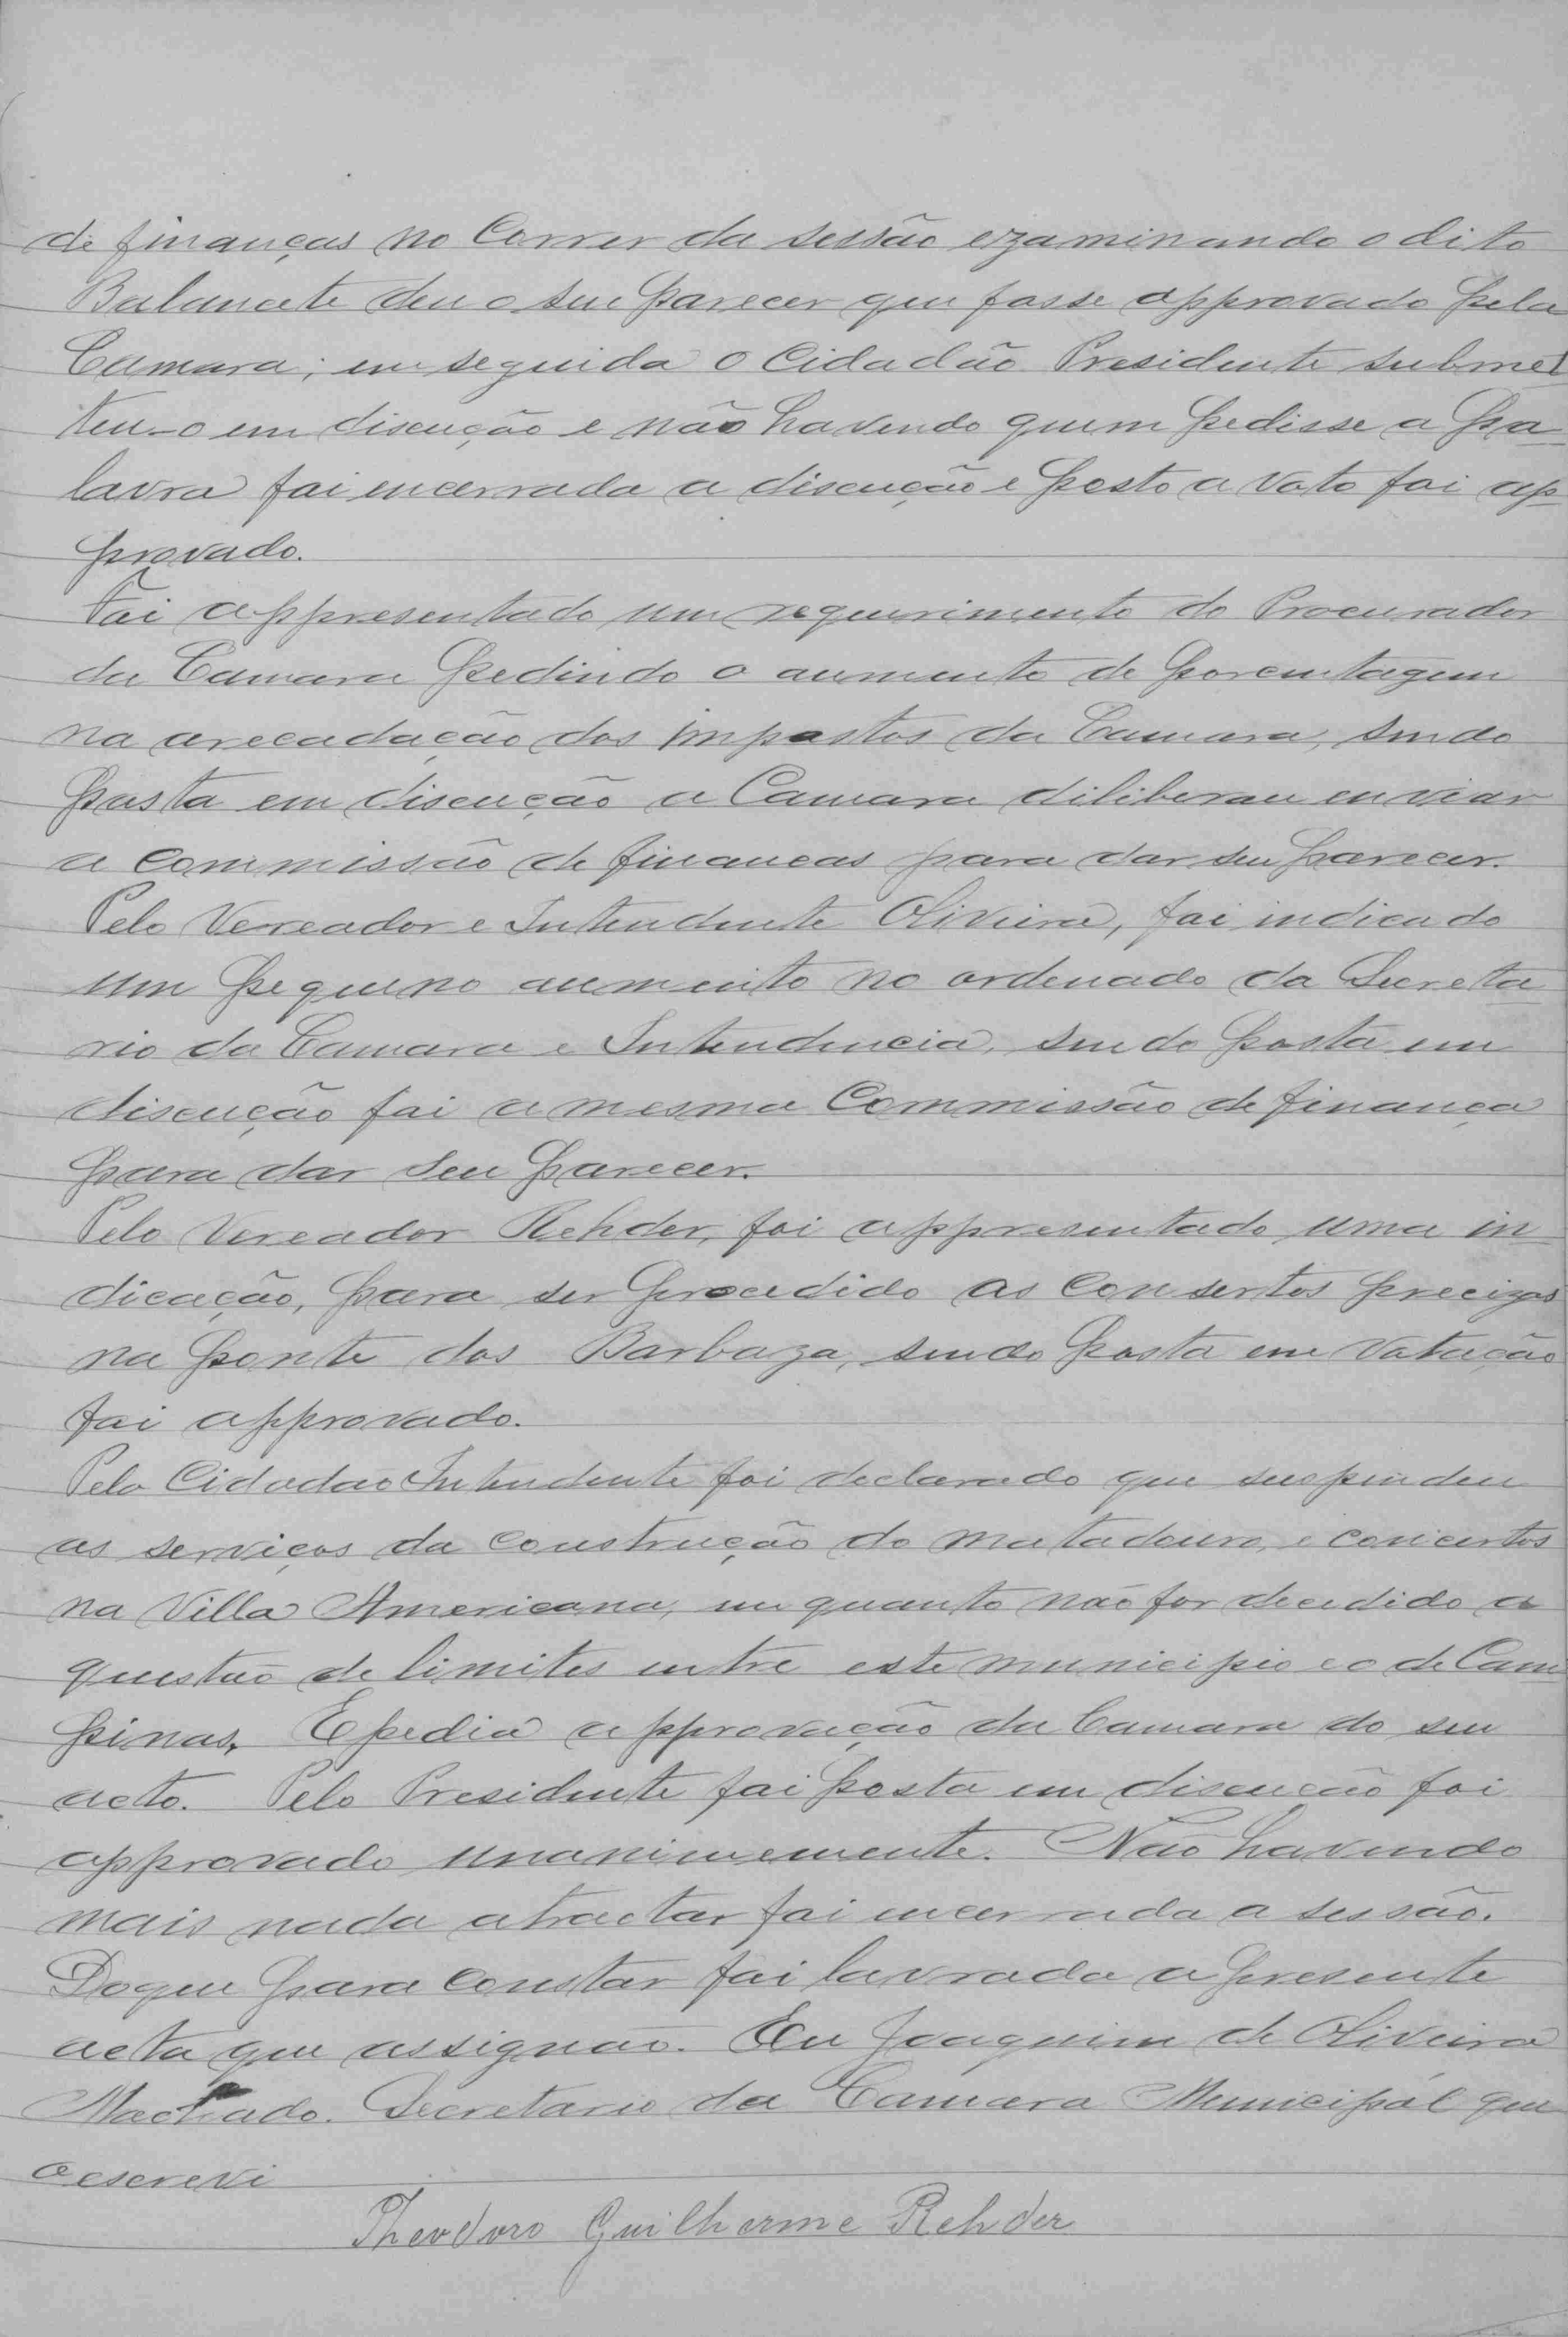 de finanças no Correr da sessão ezaminando o dito
Balancete deu o seu parecer que fosse approvado pela
Camara; em seguida o Cidadão Presidente submet
teu-o em discução e não havendo quem pedisse a pa-
lavra foi encerrada a discução e posto a voto foi ap-
provado.
Foi appresentado um requerimento do Procurador
da Camara pedindo o aumento de porcentagem
na arecadação dos impostos da Camara, sendo
posta em discução a Camara diliberou enviar
a Commissão de finanças para dar seu parecer.
Pelo Vereador e Intendente Oliveira, foi indicado
um pequeno aumento no ordenado da Secreta
rio da Camara e Intendencia, sendo posta em
discução foi a mesma Commissão de finança
para dar seu parecer.
Pelo Vereador Rehder, foi appresentado uma in-
dicação, para ser procedido os consertos precizos
na ponte dos Barbaza, sendo posta em votação
foi approvado.
Pelo Cidadão Intendente foi declarado que suspendeu
os serviços da construcção do matadouro, e concertos
na Villa Americana, em quanto não for decedido a
questão de limites entre este municipio e o de Cam-
pinas, E pedia approvação da Camara do seu
acto. Pelo Presidente foi posta em discução foi
approvado unanimemente. Não havendo
mais nada a tractar foi encerrada a sessão.
Do que para constar foi lavrada a presente
acta que assignão. Eu Joaquim de Oliveira
Machado. Secretario da Camara Municipal que
o escrevi
Theodoro Guilherme Rehder